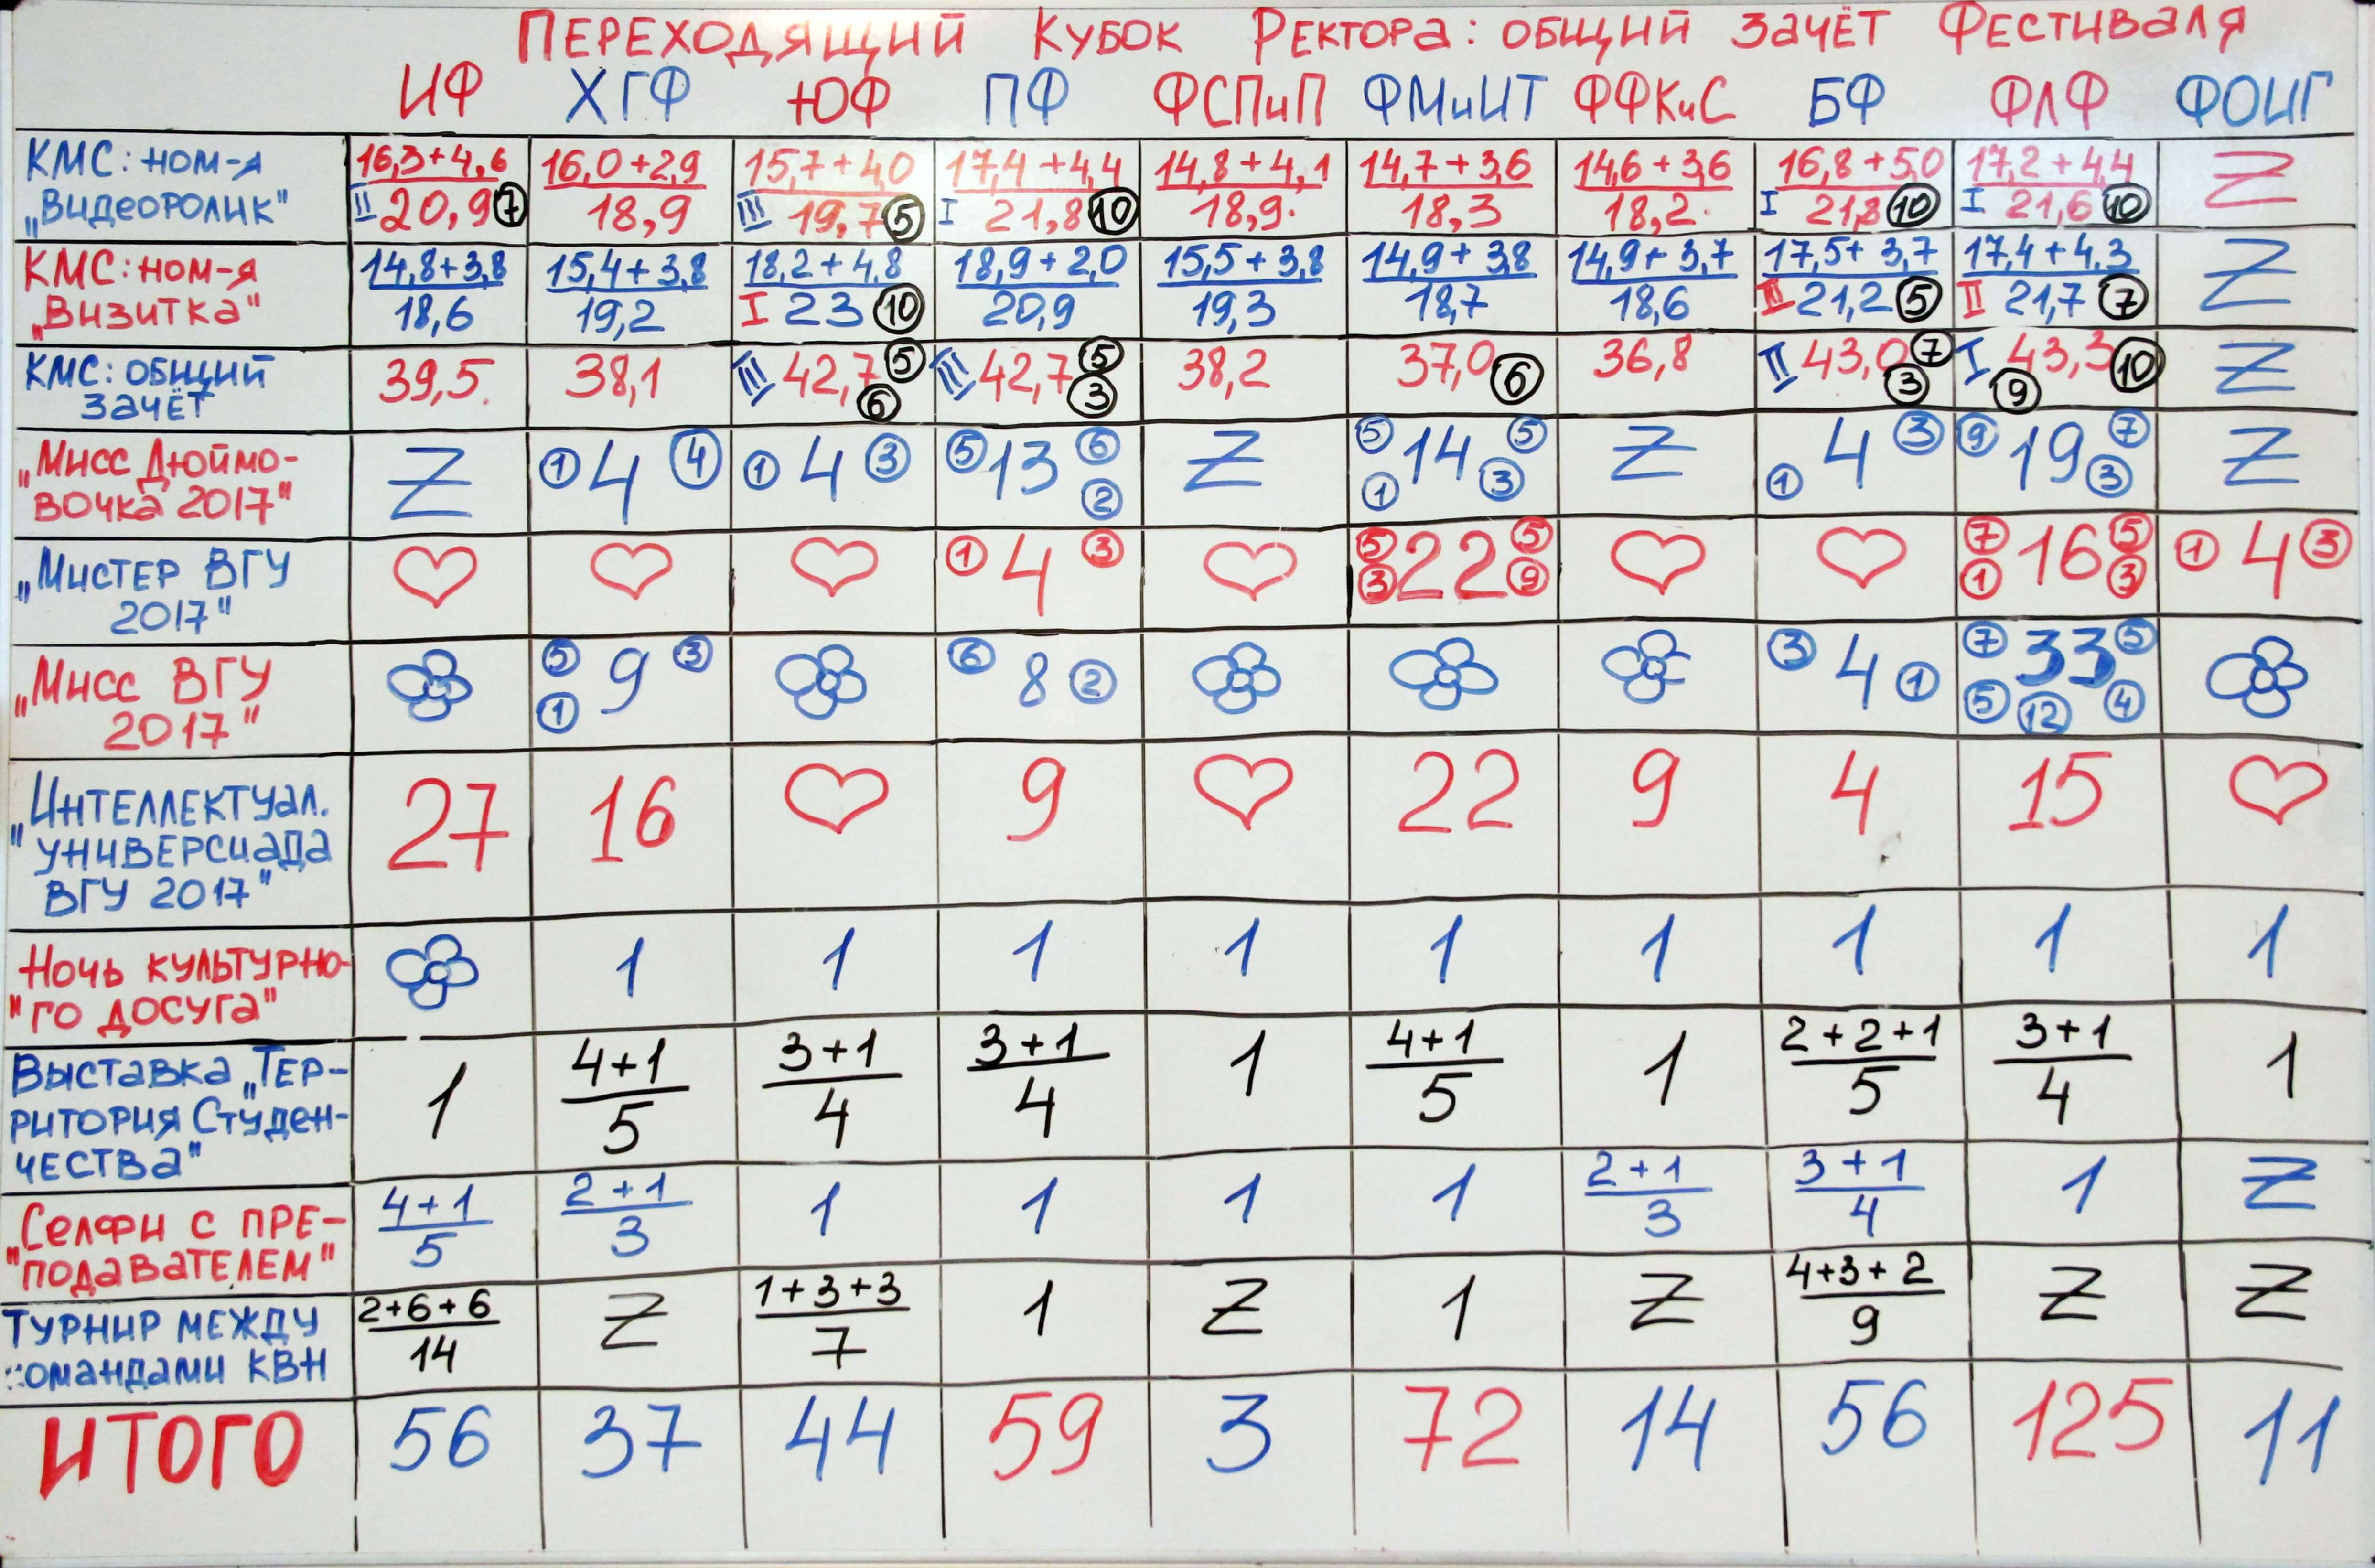 Переходящий Кубок Ректора: общий зачёт Фестиваля
ИФ ХГФ ЮФ ПФ ФСПиП ФМиИТ ФФКиС БФ ФЛФ ФОИГ
КМС: ном-я 16,3+4,6 16,0+2,9 15,7+4,0 17,4+4,4 14,8+4,1 14,7+3,6 14,6+3,6 16,8+5,0 17,2+4,4 Z
„Видеоролик" II 20,9 7 18,9 III 19,7 5 I 21,8 10 18,9 18,3 18,2 I 21,8 10 I 21,6 10
КМС: ном-я 14,8+3,8 15,4+3,8 18,2+4,8 18,9+2,0 15,5+3,8 14,9+3,8 14,9+3,7 17,5+3,7 17,4+4,3 Z
„Визитка" 18,6 19,2 I 23 10 20,9 19,3 18,7 18,6 III 21,2 5 II 21,7 7
КМС: общий 39,5 38,1 III 42,7 5 III 42,7 5 38,2 37,0 6 36,8 II 43,0 7 I 43,3 10 Z
зачёт 6 3 3 9
„Мисс Дюймо- Z 1 4 4 1 4 3 5 13 6 Z 5 14 5 Z 4 3 9 19 7 Z
вочка 2017" 2 1 3 1 3
„Мистер ВГУ 1 4 3 5 22 5 7 16 5 1 4 3
2017" 3 9 1 3
„Мисс ВГУ 5 9 3 6 8 2 3 4 1 7 33 5
2017" 1 5 12 4
„Интеллектуал. 27 16 9 22 9 4 15
универсиада
ВГУ 2017"
Ночь культурно- 1 1 1 1 1 1 1 1 1
"го досуга"
Выставка „Тер- 1 4+1 3+1 3+1 1 4+1 1 2+2+1 3+1 1
ритория Студен- 5 4 4 5 5 4
чества"
„Селфи с пре- 4+1 2+1 1 1 1 1 2+1 3+1 1 Z
подавателем" 5 3 3 4
Турнир между 2+6+6 Z 1+3+3 1 Z 1 Z 4+3+2 Z Z
омандами КВН 14 7 9
ИТОГО 56 37 44 59 3 72 14 56 125 11